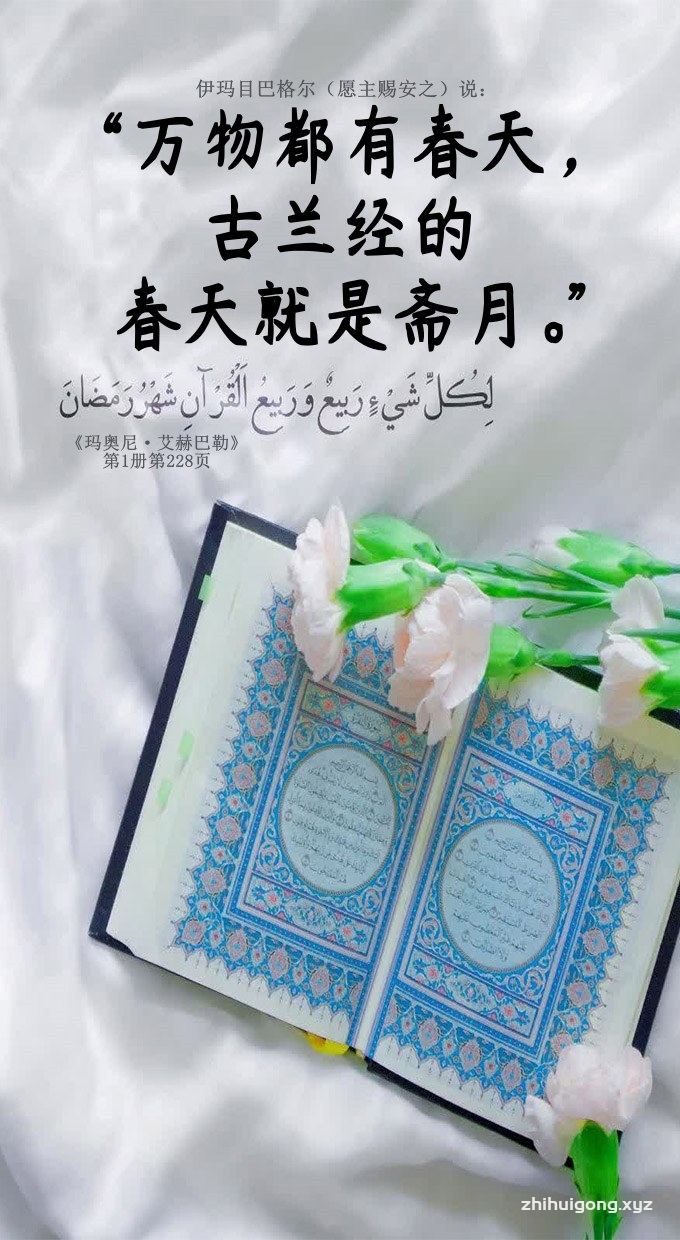 伊玛目巴格尔（愿主赐安之）说：
“万物都有春天，
古兰经的
春天就是斋月。”
لِكُلِّ شَيْءٍ رَبِيعٌ وَرَبِيعُ الْقُرْآنِ شَهْرُ رَمَضَانَ
《玛奥尼·艾赫巴勒》
第1册第228页
zhihuigong.xyz